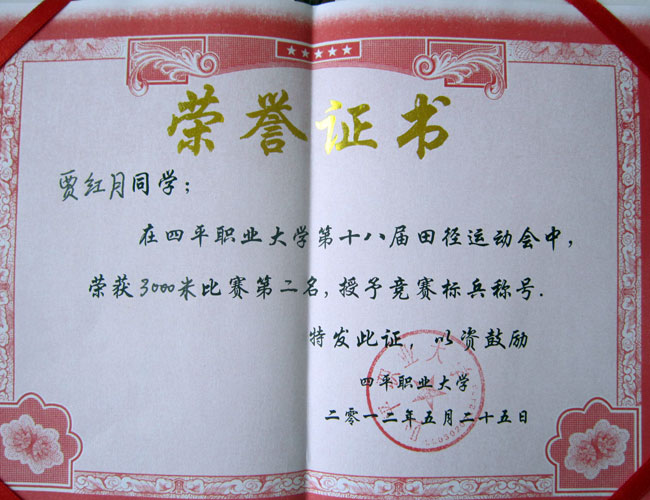 荣誉证书
贾红月同学；
在四平职业大学第十八届田径运动会中，
荣获3000米比赛第二名，授予竞赛标兵称号．
特发此证，以资鼓励
四平职业大学
二零一二年五月二十五日